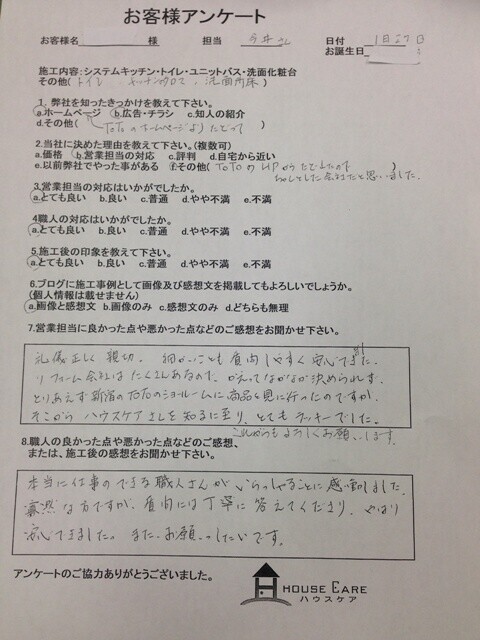 お客様アンケート
お客様名 様 担当 今井さん 日付 1日27日
お誕生日
施工内容:システムキッチン・トイレ・ユニットバス・洗面化粧台
その他(トイレ キッチンクロス、洗面所床)
1. 弊社を知ったきっかけを教えて下さい。
a.ホームページ b.広告・チラシ c.知人の紹介
d.その他( TOTOのホームページよりたどって )
2.当社に決めた理由を教えて下さい。(複数可)
a.価格 b.営業担当の対応 c.評判 d.自宅から近い
e.以前弊社でやった事がある fその他( TOTOのHPからたどったので )
ちゃんとした会社だと思いました。
3.営業担当の対応はいかがでしたか。
a.とても良い b.良い c.普通 d.やや不満 e.不満
4職人の対応はいかがでしたか。
a.とても良い b.良い c.普通 d.やや不満 e.不満
5.施工後の印象を教えて下さい。
a.とても良い b.良い c.普通 d.やや不満 e.不満
6.ブログに施工事例として画像及び感想文を掲載してもよろしいでしょうか。
(個人情報は載せません)
a.画像と感想文 b.画像のみ c.感想文のみ d.どちらも無理
7.営業担当に良かった点や悪かった点などのご感想をお聞かせ下さい。
礼儀正しく親切。細かいことも質問しやすく安心できました。
リフォーム会社はたくさんあるので、かえってなかなか決められず、
とりあえず新宿のTOTOのショールームに商品を見に行ったのですが、
そこからハウスケアさんを知るに至り、とてもラッキーでした。
これからもよろしくお願いします。
8.職人の良かった点や悪かった点などのご感想、
または、施工後の感想をお聞かせ下さい。
本当に仕事のできる職人さんがいらっしゃることに感動しました。
寡黙な方ですが、質問には丁寧に答えてくださり、やはり
安心できました。また、お願いしたいです。
アンケートのご協力ありがとうございました。
HOUSE CARE
ハウスケア